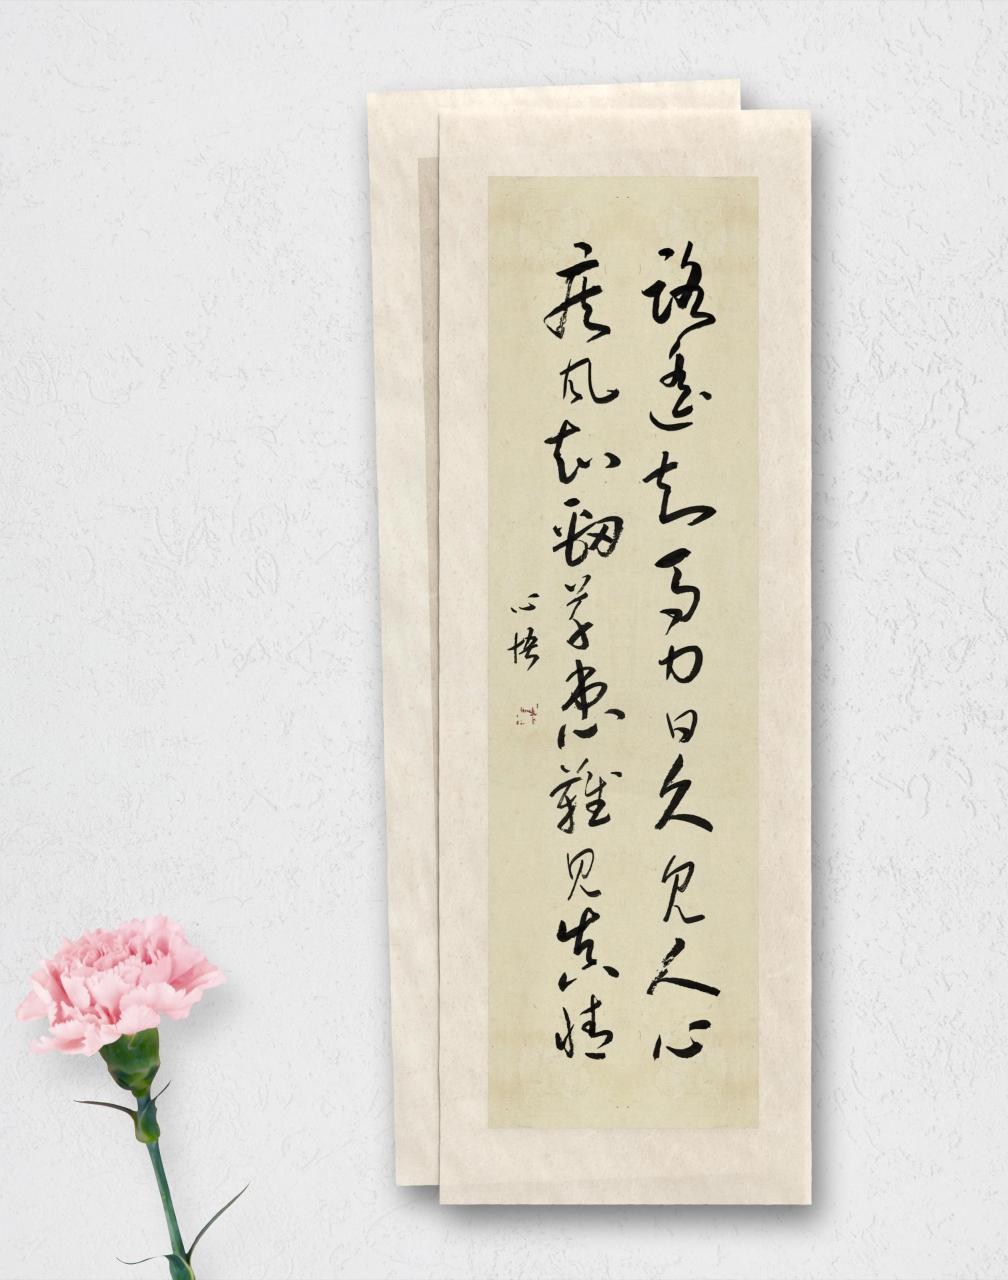 路遥知马力日久见人心
疾风知劲草患難见真情
心悟